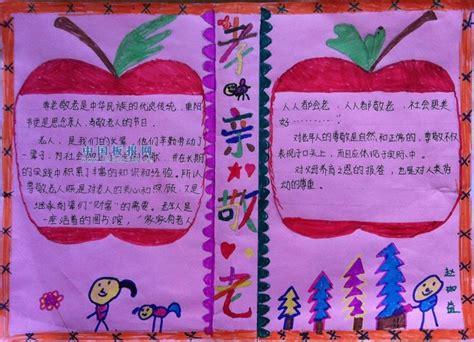 尊老敬老是中华民族的优良传统，重阳
节使是思念亲人，尊敬老人的节日。
中国板报网
老人，是我们的长辈，他们辛勤劳动了
一辈子，为社会
，并在长期
的实践中积累丰富的知识和经验。所以
尊敬老人既是对老人的关心和照顾，又是
继承前辈们"财富"的需要。老年人是
一座活着的图书馆，"家家有老人
孝
亲
敬
老
人人都会老，人人都敬老，社会更美
好……
对老年人的尊敬是自然和正常的，尊敬不仅
表现于口头上，而且应体现于实际中。
对父母养育之恩的报答，也是对人类劳
动的尊重。